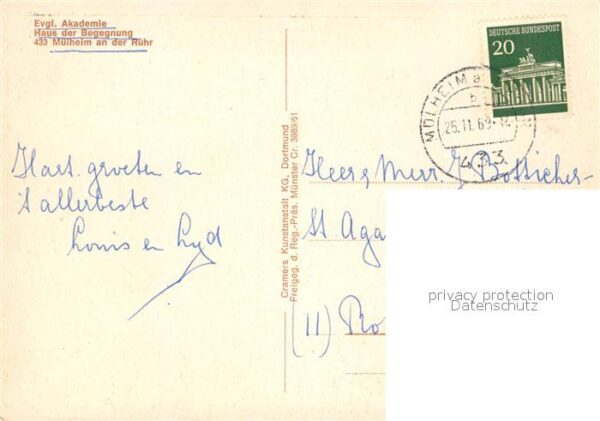 Evgl. Akademie
Haus der Begegnung
433 Mülheim an der Ruhr
DEUTSCHE BUNDESPOST
20
MÜLHEIM a
25.11.69
433
Hart. groeten en
't allerbeste
Louis en Lyd
Cramers Kunstanstalt KG, Dortmund
Freigeg. d. Reg.-Präs. Münster Cr. 3889/61
Heer & Mevr. Botticher-
St. Aga
(11) Ro
privacy protection
Datenschutz